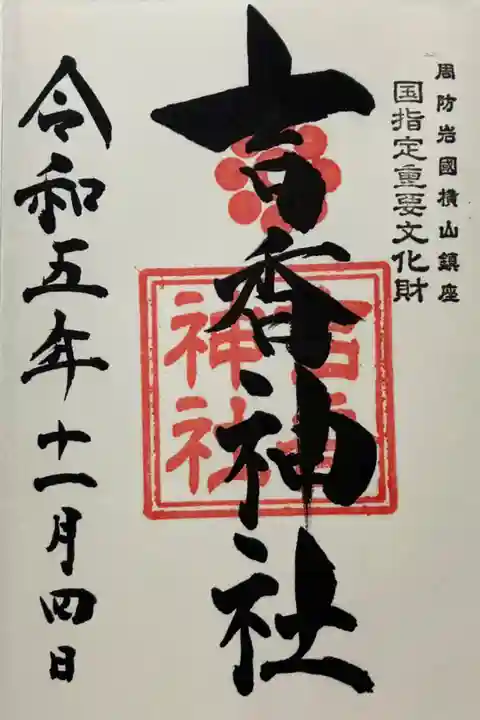 周防岩國横山鎮座
国指定重要文化財
吉香神社
吉香神社
令和五年十一月四日